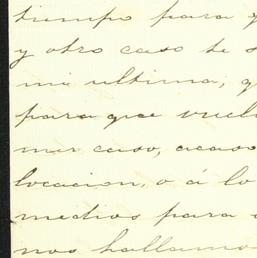 tiempo para
y otro caso te s
mi ultima, q
para que vuel
mer caso, acaso
locacion, o á lo
medios para
nos hallamos